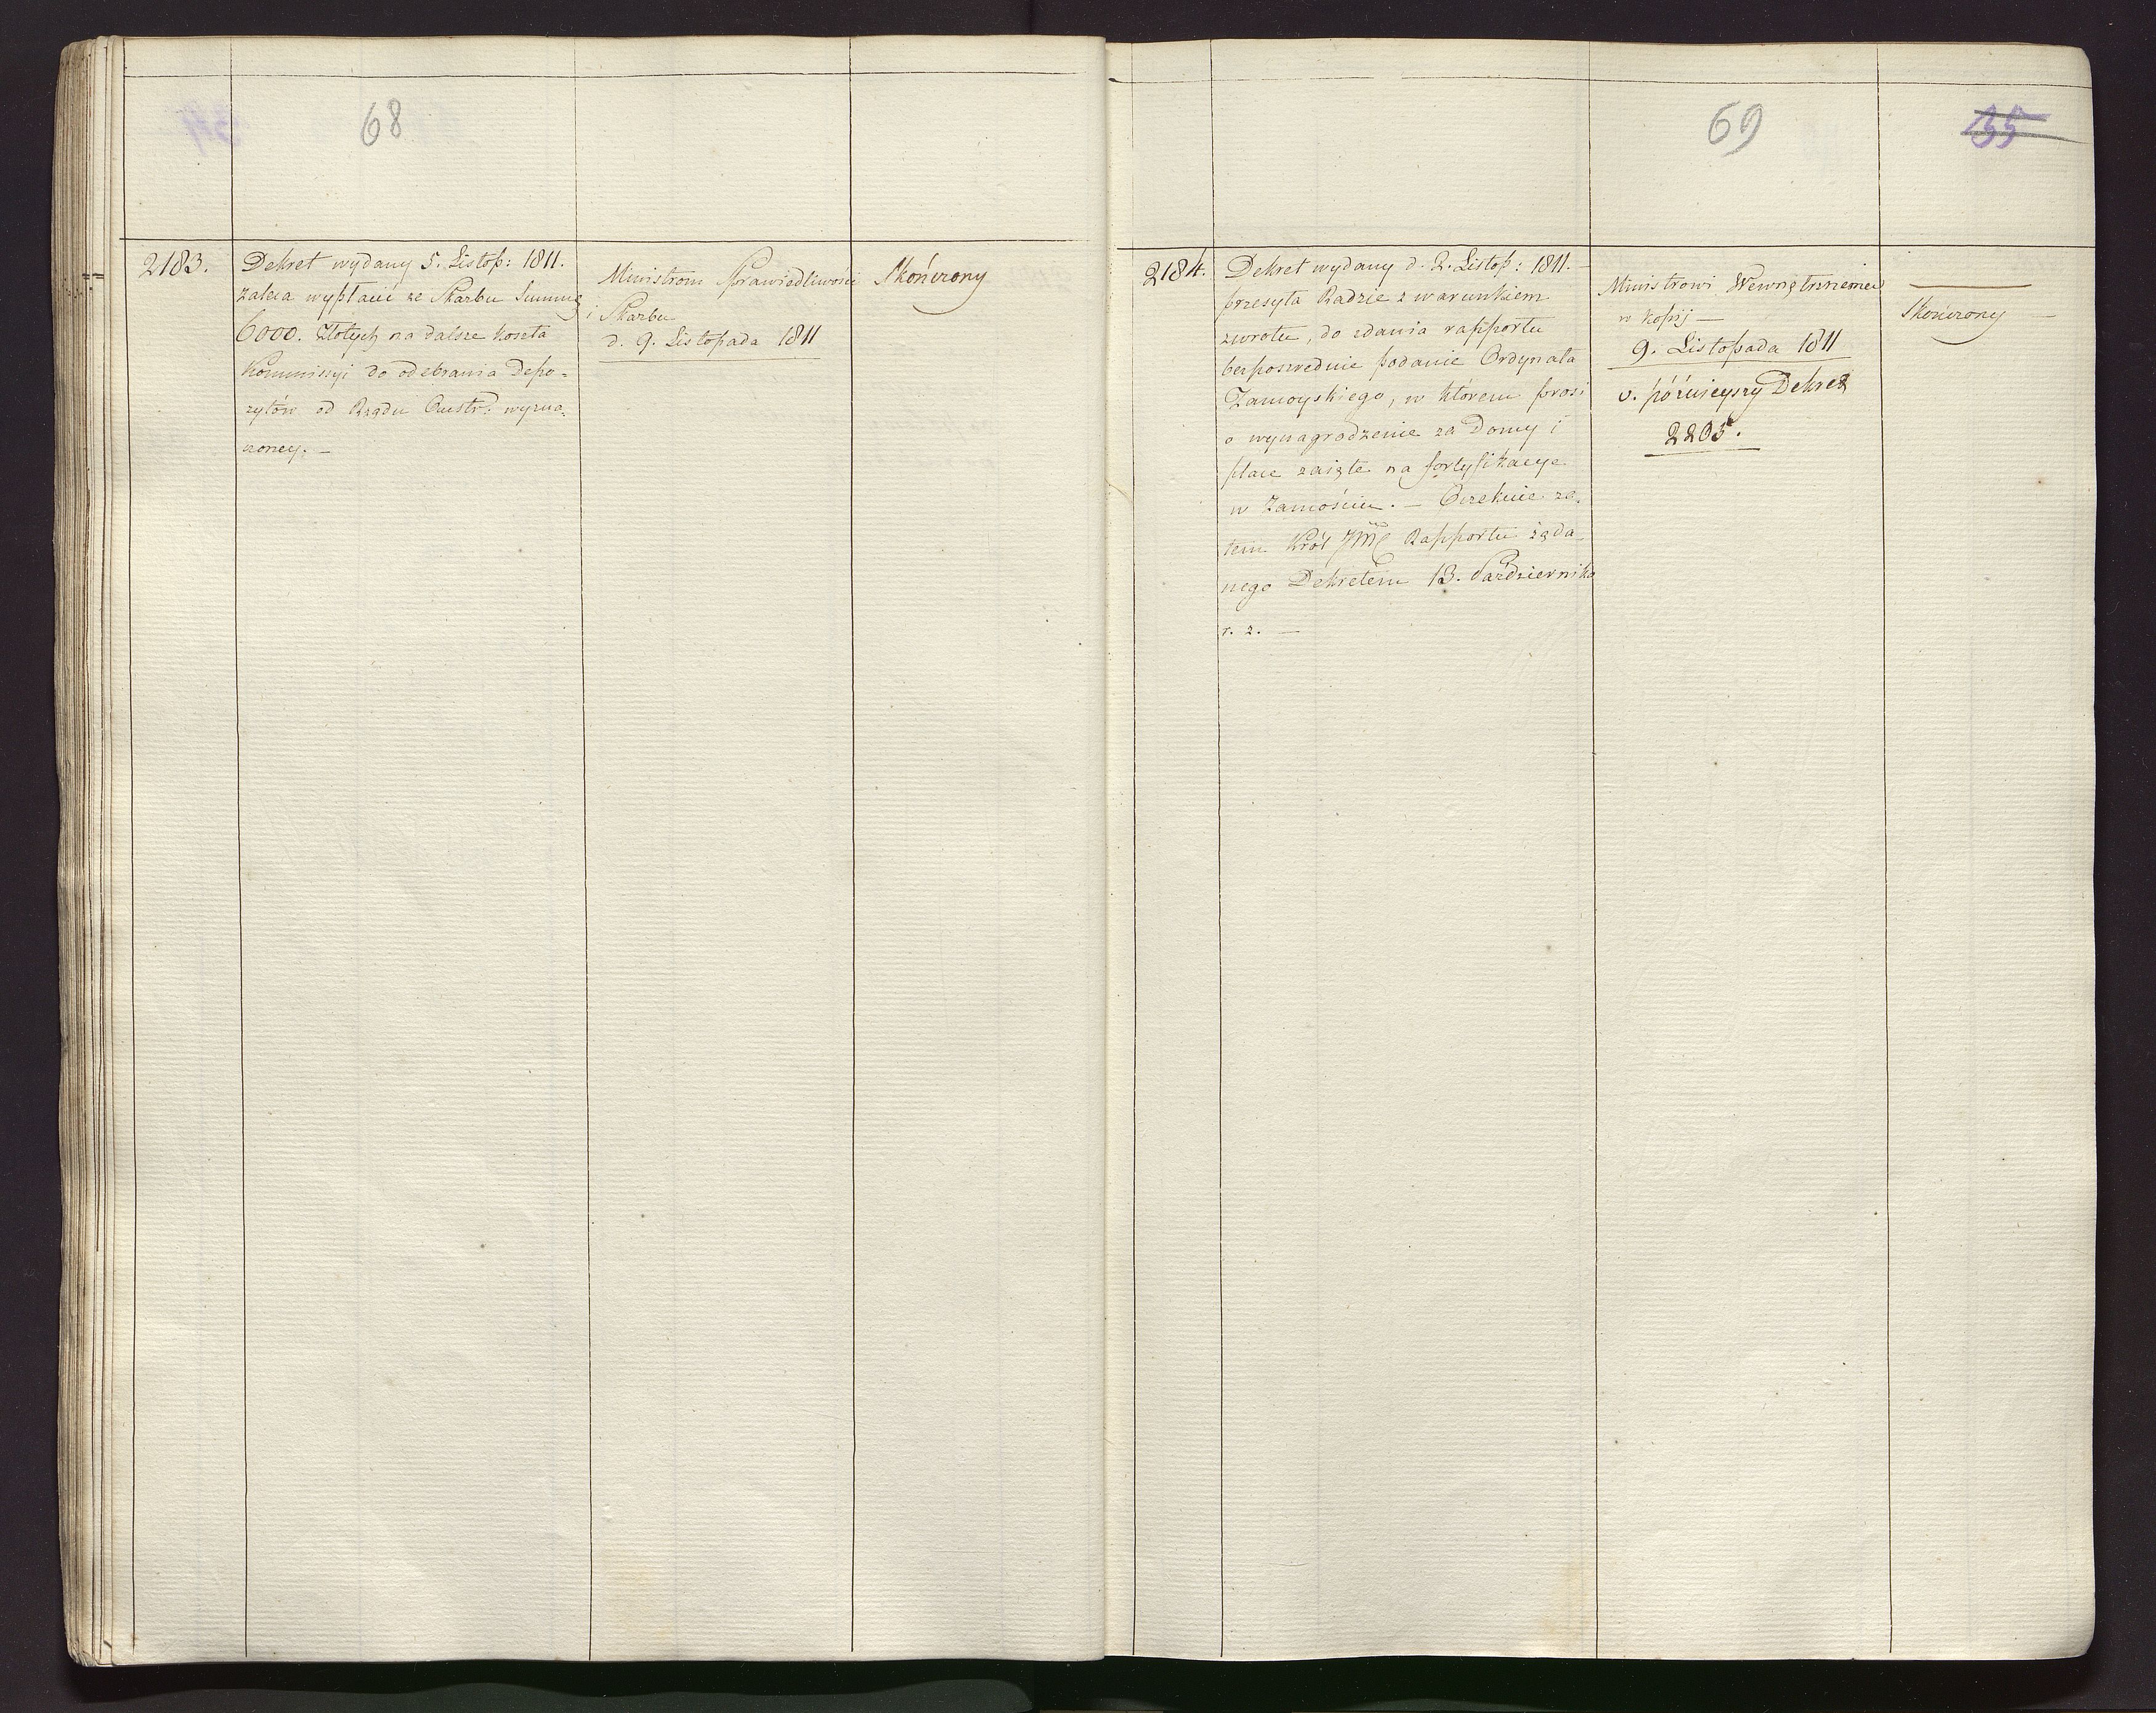 68
2183.
Dekret wydany 5. Listop: 1811.
zaleca wypłacić ze Skarbu Summę
6000. Złotych na dalsze koszta
Kommissyi do odebrania Depo-
zytów od Rządu Austr: wyzna-
czoney. —
Ministrom Sprawiedliwości
i Skarbu
d. 9. Listopada 1811
Skończony
69
35
2184.
Dekret wydany d. 2. Listop: 1811. —
przesyła Radzie z warunkiem
zwrotu, do zdania rapportu
bezpośrednie podanie Ordynata
Zamoyskiego, w którem prosi
o wynagrodzenie za Domy i
place zaięte na fortyfikacye
w Zamościu. — Oczekuie za-
tem Król JMć Rapportu żąda-
nego Dekretem 13. Października
r. z. —
Ministrowi Wewnętrznemu
w kopij —
9. Listopada 1811
v. póznieyszy Dekret
2205.
Skończony —